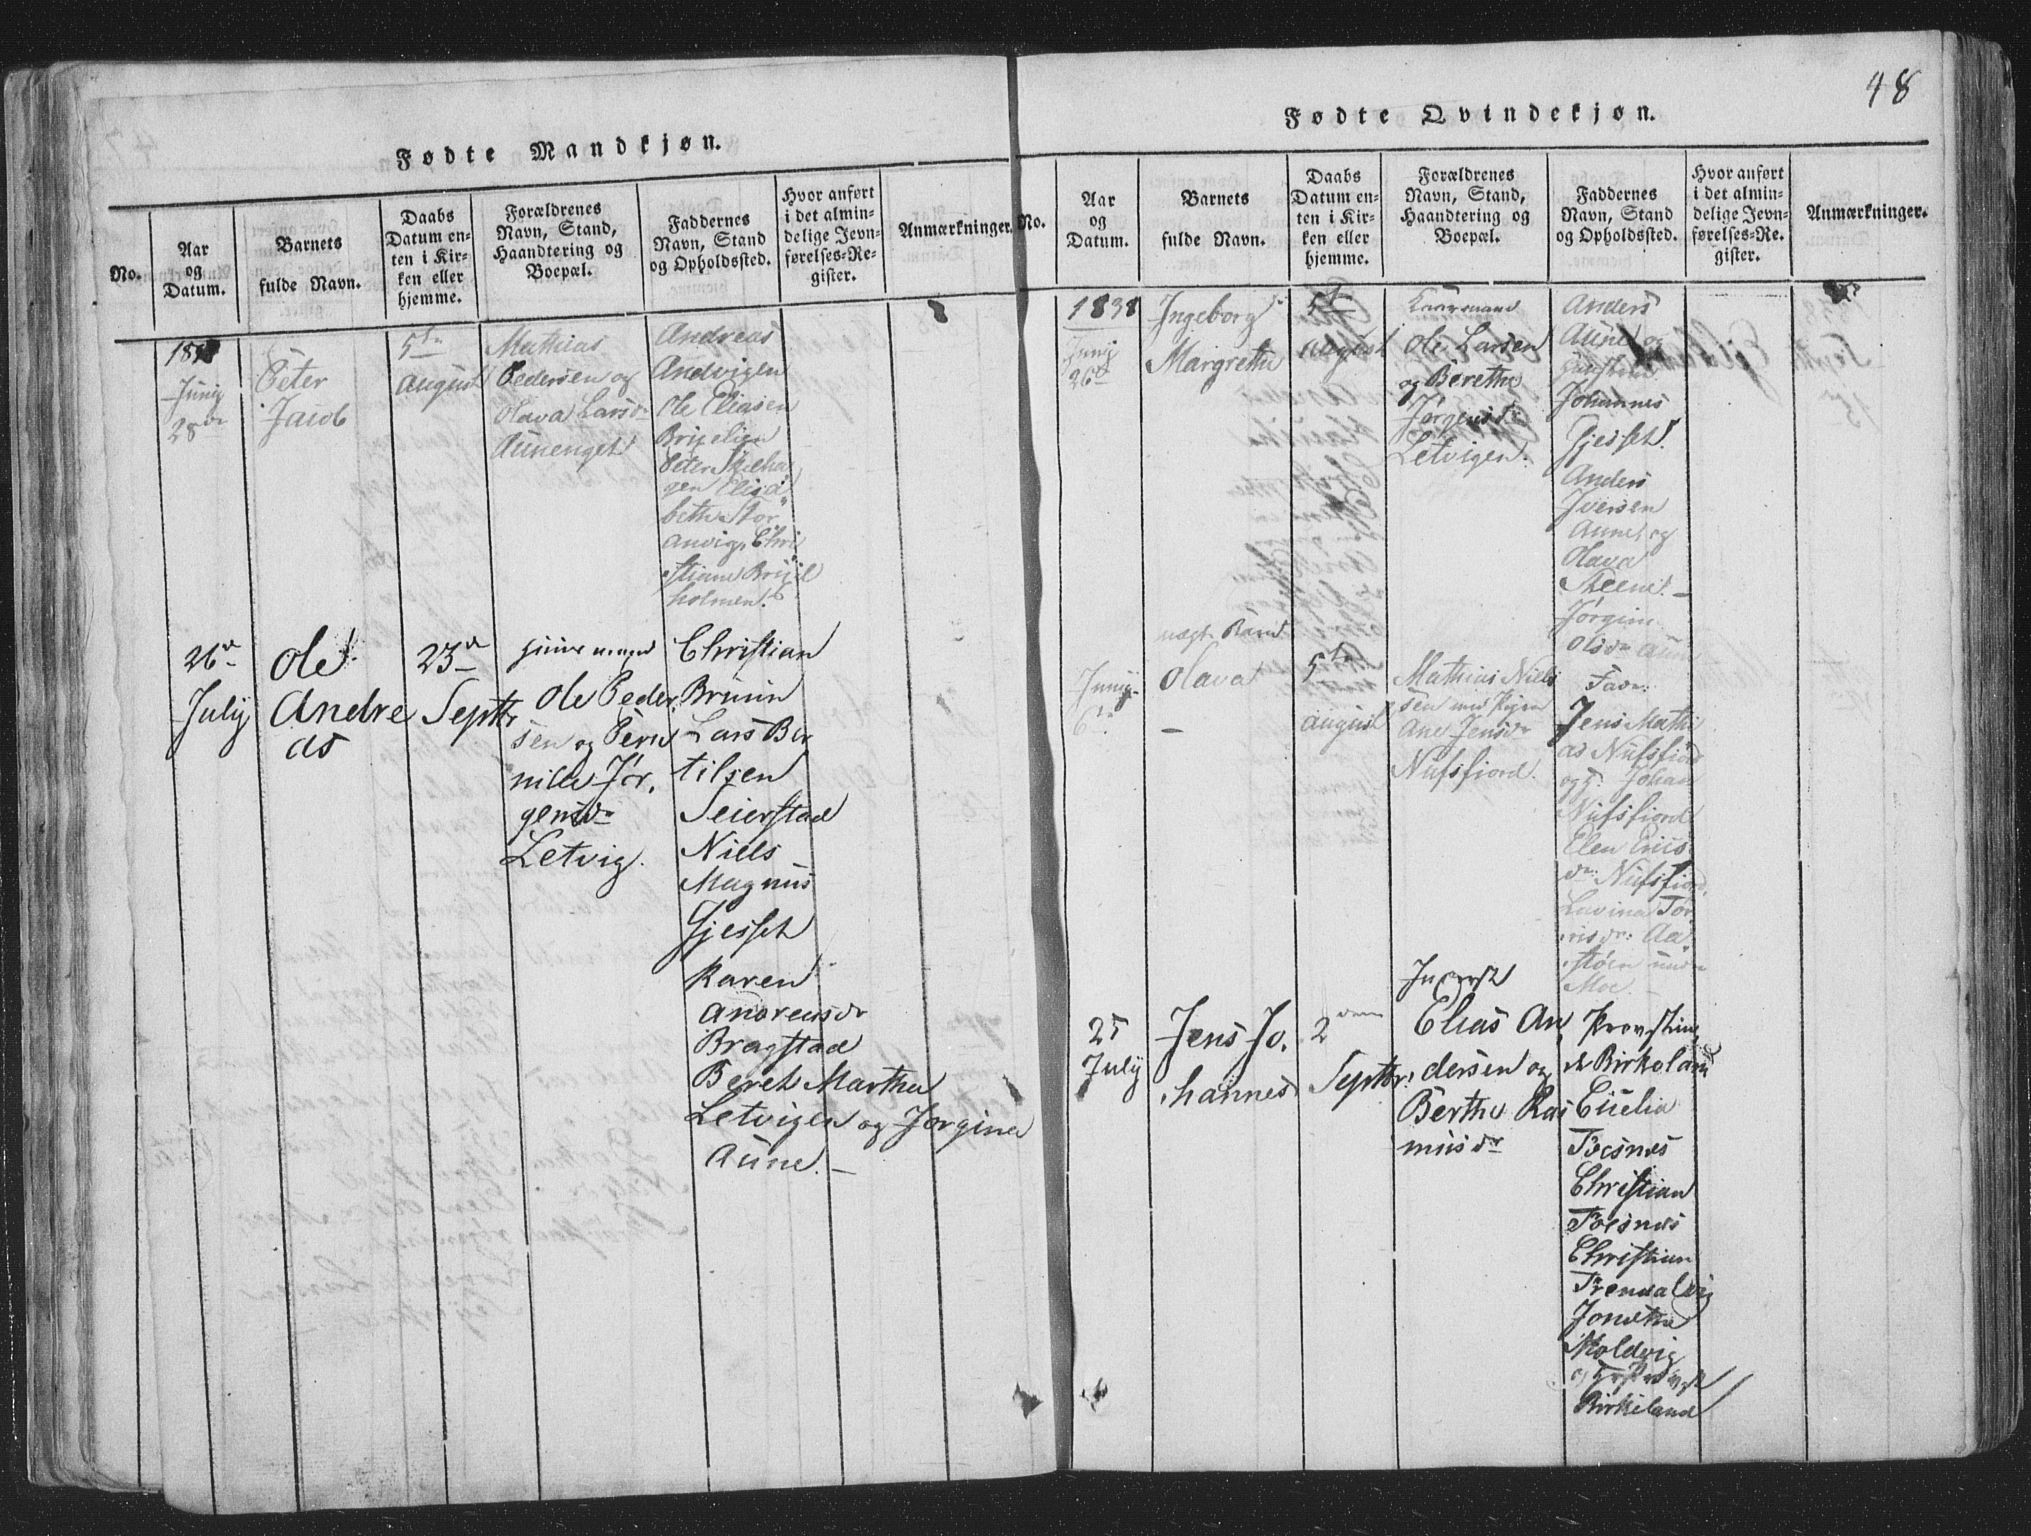 48
Fødte Mandkjøn.
No.
Aar
og
Datum.
Barnets
fulde Navn.
Daabs
Datum en-
ten i Kir-
ken eller
hjemme.
Forældrenes
Navn, Stand,
Haandtering og
Boepæl.
Faddernes
Navn, Stand
og Opholdssted.
Hvor anført
i det almin-
delige Jevn-
førelses-Re-
gister.
Anmærkninger.
Juny
28de
Peter
Jacob
5te
August
Mathias
Pedersen og
Olava Larsdr
Aunenget
Andreas
Andvigen
Ole Eliasen
Peter
gen Elisa
beth Stor
anvig, Chri
stiane
holmen.
26de
July
Ole
Andre
as
23de
Septbr
Ole Peder
sen og Pern
nille Jør,
gensdr
Letvig.
Christian
Bruun
Lars Ber
tilsen
Seierstad
Niels
Magnus
Gjesset
Karen
Andreasdr
Bragstad
Beret Martha
Letvigen og Jørgine
Aune. —
Fødte Qvindekjøn.
No.
Aar
og
Datum.
Barnets
fulde Navn.
Daabs
Datum en-
ten i Kir-
ken eller
hjemme.
Forældrenes
Navn, Stand,
Haandtering og
Boepæl.
Faddernes
Navn, Stand
og Opholdssted.
Hvor anført
i det almin-
delige Jevn-
førelses-Re-
gister.
Anmærkninger.
1838
Juny
26de
Ingeborg
Margrethe
5te
August
Ole Larsen
og Berethe
Jørgensdr
Letvigen.
Anders
Aune og
Johannes
Gjesset.
Anders
Iversen
Aune, og
Olava
Steene. —
Jørgine
Olsdr Aune
Juny
6te
uægt. Barn
Olava
—
5te
August
Mathias Niels
sen med Pigen
Ane Jensdr
Nufsfiord.
Fadr:
Jens Mathi
as Nufsfiord
og Johan
Nufsfiord
Elen Erics
dr: Nufsfiord,
Lavina Tør
risdr: Aa
støen
Moe. —
25
July
Jens Jo,
hannes
2den
Septbr:
Inderst
Elias An,
dersen og
Berthe Ras
musdr
Provstin,
de Birkeland
Eilelia
Foesnes
Christian
Foesnes
Christian
Frendalvig
Jonetha
Moldvig
og Provst
Birkeland